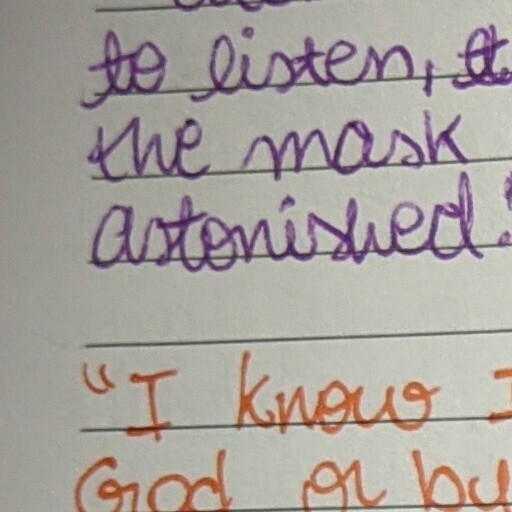 to listen,
the mask
astonished
"I know I
God or by